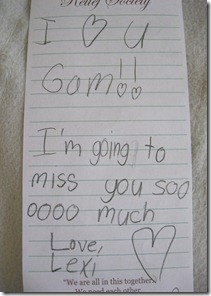 Relief Society
I ♡ U
Gam!!
I'm going to
miss you soo
oooo much
Love,
Lexi
"We are all in this together.
We need each other